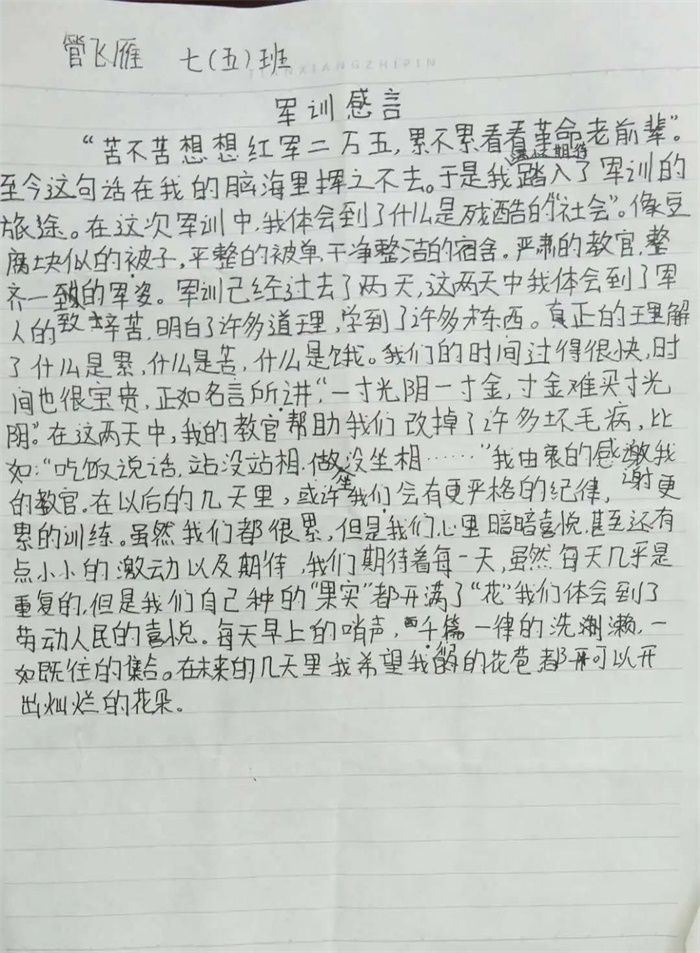 管飞雁 七(五)班
TIANXIANGZHIPIN
军训感言
“苦不苦想想红军二万五,累不累看看革命老前辈”。
满怀期待
至今这句话在我的脑海里挥之不去。于是我踏入了军训的
旅途。在这次军训中,我体会到了什么是残酷的“社会”。像豆
腐块似的被子,平整的被单,干净整洁的宿舍。严肃的教官,整
齐一致的军姿。军训已经过去了两天,这两天中我体会到了军
人的辛苦,明白了许多道理,学到了许多东西。真正的理解
了什么是累,什么是苦,什么是饿。我们的时间过得很快,时
间也很宝贵,正如名言所讲,“一寸光阴一寸金,寸金难买寸光
阴”。在这两天中,我的教官帮助我们改掉了许多坏毛病,比
如:“吃饭说话,站没站相,做没坐相……”我由衷的感激我
坐 谢
的教官。在以后的几天里,或许我们会有更严格的纪律,更
累的训练。虽然我们都很累,但是我们心里暗暗喜悦,甚至还有
点小小的激动以及期待,我们期待着每一天,虽然每天几乎是
重复的,但是我们自己种的“果实”都开满了“花”我们体会到了
劳动人民的喜悦。每天早上的哨声,千篇一律的洗漱,一
如既往的集合。在未来的几天里我希望我们的花苞,都可以开
出灿烂的花朵。